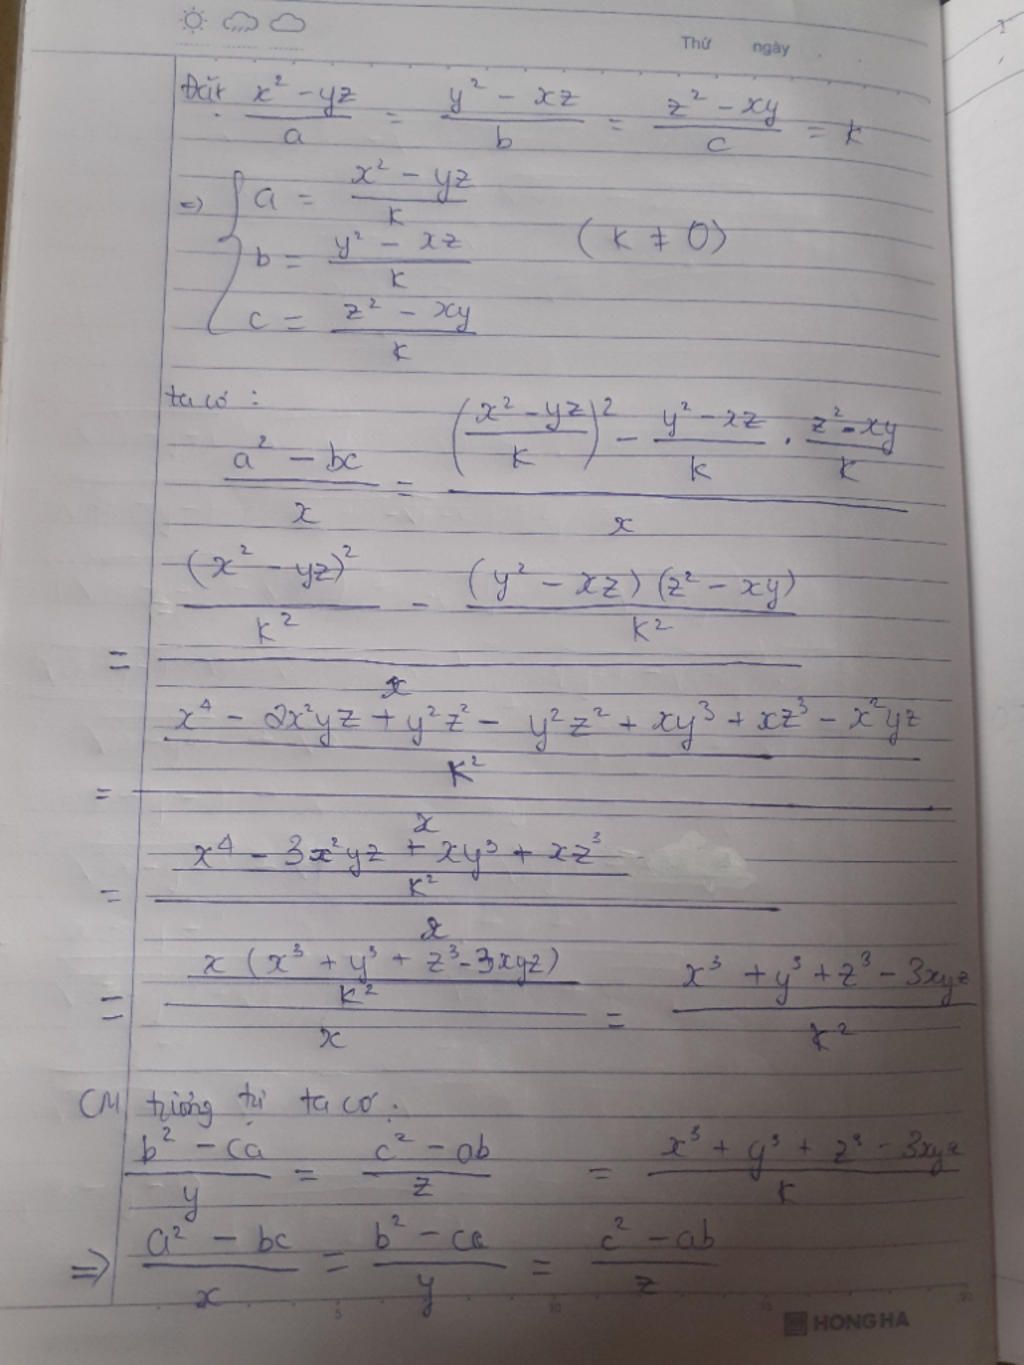 Thứ ngày
Đặt x² - yz / a = y² - xz / b = z² - xy / c = k
=> { a = x² - yz / k
b = y² - xz / k (k ≠ 0)
c = z² - xy / k
ta có :
a² - bc / x = (x² - yz / k)² - y² - xz / k . z² - xy / k / x
= (x² - yz)² / k² - (y² - xz) (z² - xy) / k² / x
= x⁴ - 2x²yz + y²z² - y²z² + xy³ + xz³ - x²yz / k² / x
= x⁴ - 3x²yz + xy³ + xz³ / k² / x
= x (x³ + y³ + z³ - 3xyz) / k² / x = x³ + y³ + z³ - 3xyz / k²
CM tương tự ta có :
b² - ca / y = c² - ab / z = x³ + y³ + z³ - 3xyz / k
=> a² - bc / x = b² - ca / y = c² - ab / z
5 10 15 20
HONG HA